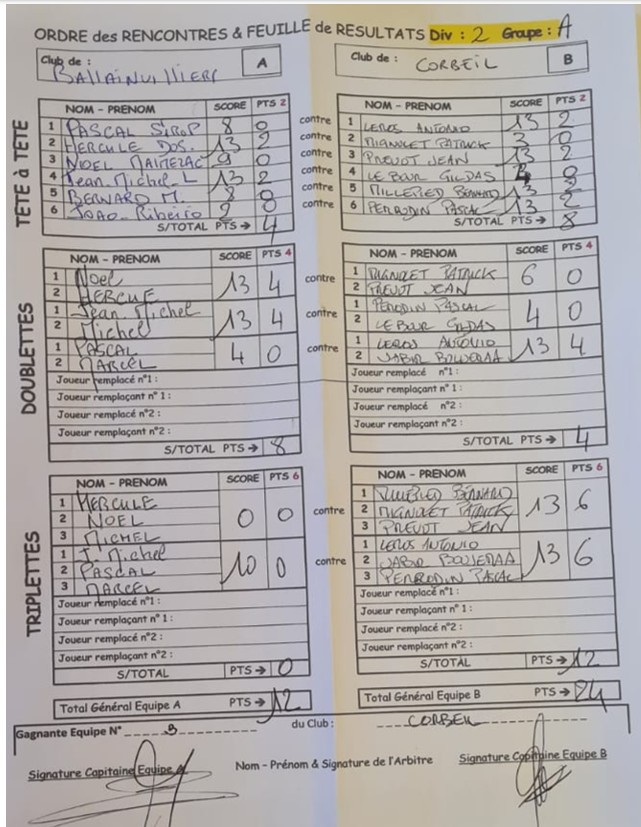 ORDRE des RENCONTRES & FEUILLE de RESULTATS Div : 2 Groupe : A
Club de : BALLAINVILLIERS A
Club de : CORBEIL B
TÊTE à TÊTE
NOM - PRENOM SCORE PTS 2
1 PASCAL SIROP 8 0
2 HERCULE DOS. 13 2
3 NOEL 9 0
4 Jean-Michel L 13 2
5 BERNARD M. 8 0
6 JOAO Ribeiro 2 0
S/TOTAL PTS → 4
contre
contre
contre
contre
contre
contre
NOM - PRENOM SCORE PTS 2
1 LEROS ANTONIO 13 2
2 MIGNOLET PATRICK 3 0
3 PREVOT JEAN 13 2
4 LE BOUR GILDAS
5 MILLEPIED BERNARD 13 2
6 PERRODIN PASCAL 13 2
S/TOTAL PTS → 8
DOUBLETTES
NOM - PRENOM SCORE PTS 4
1 Noel 13 4
2 HERCULE
1 Jean-Michel 13 4
2 Michel
1 PASCAL 4 0
2 MARCEL
Joueur remplacé n°1 :
Joueur remplaçant n° 1 :
Joueur remplacé n°2 :
Joueur remplaçant n°2 :
S/TOTAL PTS → 8
contre
contre
contre
NOM - PRENOM SCORE PTS 4
1 MIGNOLET PATRICK 6 0
2 PREVOT JEAN
1 PERODIN PASCAL 4 0
2 LE BOUR GILDAS
1 LEROS ANTONIO 13 4
2 JABIR BOUJEMAA
Joueur remplacé n°1 :
Joueur remplaçant n°1 :
Joueur remplacé n°2 :
Joueur remplaçant n°2 :
S/TOTAL PTS → 4
TRIPLETTES
NOM - PRENOM SCORE PTS 6
1 HERCULE
2 NOEL 0 0
3 MICHEL
1 J. Michel
2 PASCAL 10 0
3 MARCEL
Joueur remplacé n°1 :
Joueur remplaçant n° 1 :
Joueur remplacé n°2 :
Joueur remplaçant n°2 :
S/TOTAL PTS → 0
contre
contre
NOM - PRENOM SCORE PTS 6
1 MILLEPIED BERNARD
2 MIGNOLET PATRICK 13 6
3 PREVOT JEAN
1 LEROS ANTONIO
2 JABIR BOUJEMAA 13 6
3 PERRODIN PASCAL
Joueur remplacé n°1 :
Joueur remplaçant n° 1 :
Joueur remplacé n°2 :
Joueur remplaçant n°2 :
S/TOTAL PTS → 12
Total Général Equipe A PTS → 12
Total Général Equipe B PTS → 24
Gagnante Equipe N° B du Club : CORBEIL
Signature Capitaine Equipe A
Nom - Prénom & Signature de l'Arbitre
Signature Capitaine Equipe B